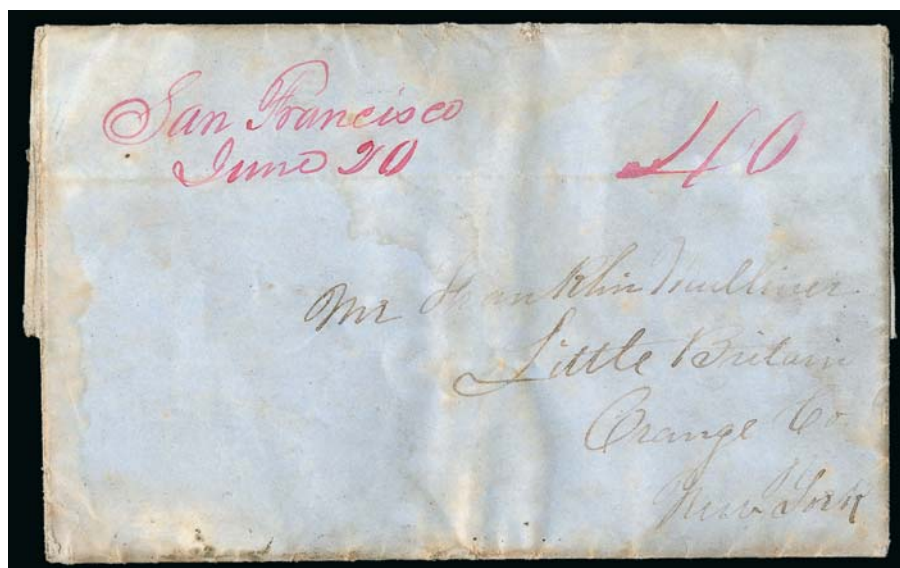 San Francisco
June 20
40
Mr Franklin Mulliner
Little Britain
Orange Co.
New York